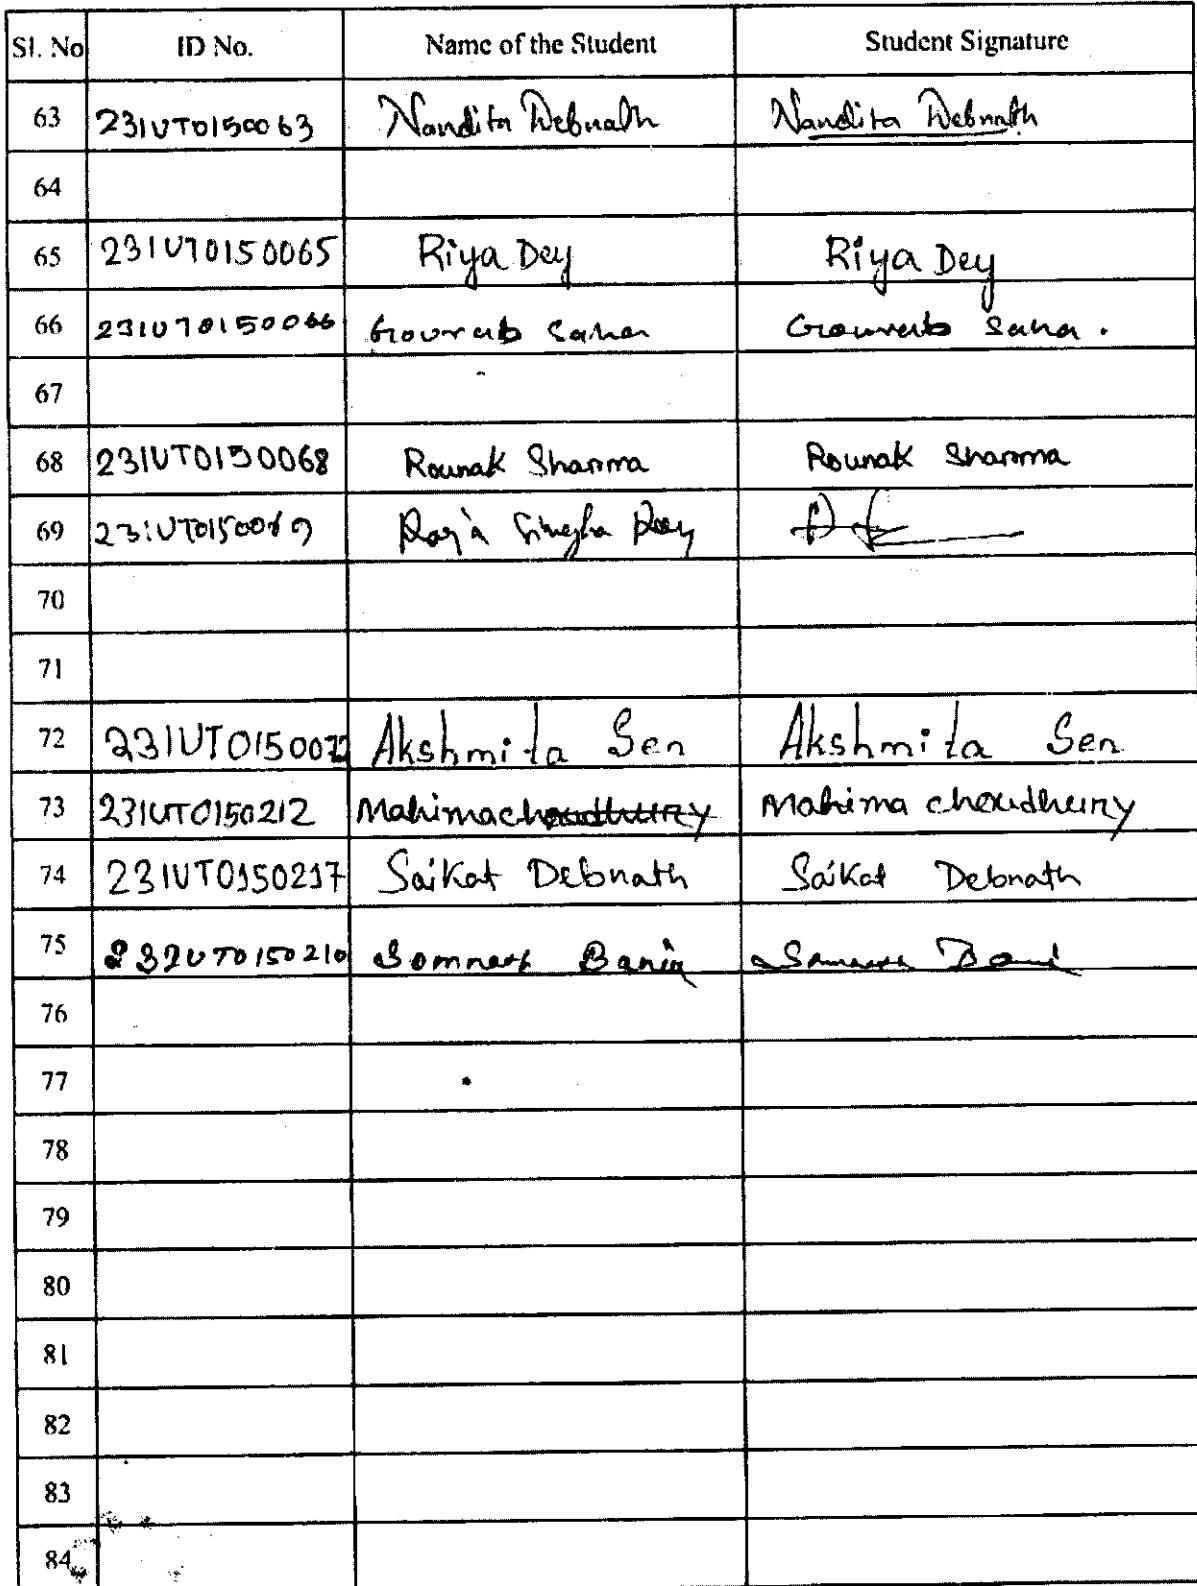 Sl. No ID No. Name of the Student Student Signature
63 231UT0150063 Nandita Debnath Nandita Debnath
64
65 231UT0150065 Riya Dey Riya Dey
66 231UT0150066 Gourab Saha Gourab Saha.
67
68 231UT0150068 Rounak Sharma Rounak Sharma
69 231UT0150069 Raja Singha Roy
70
71
72 231UT0150072 Akshmita Sen Akshmita Sen
73 231UT0150212 Mahima choudhury Mahima choudhury
74 231UT0150217 Saikat Debnath Saikat Debnath
75 231UT0150210 Somnath Banik
76
77
78
79
80
81
82
83
84